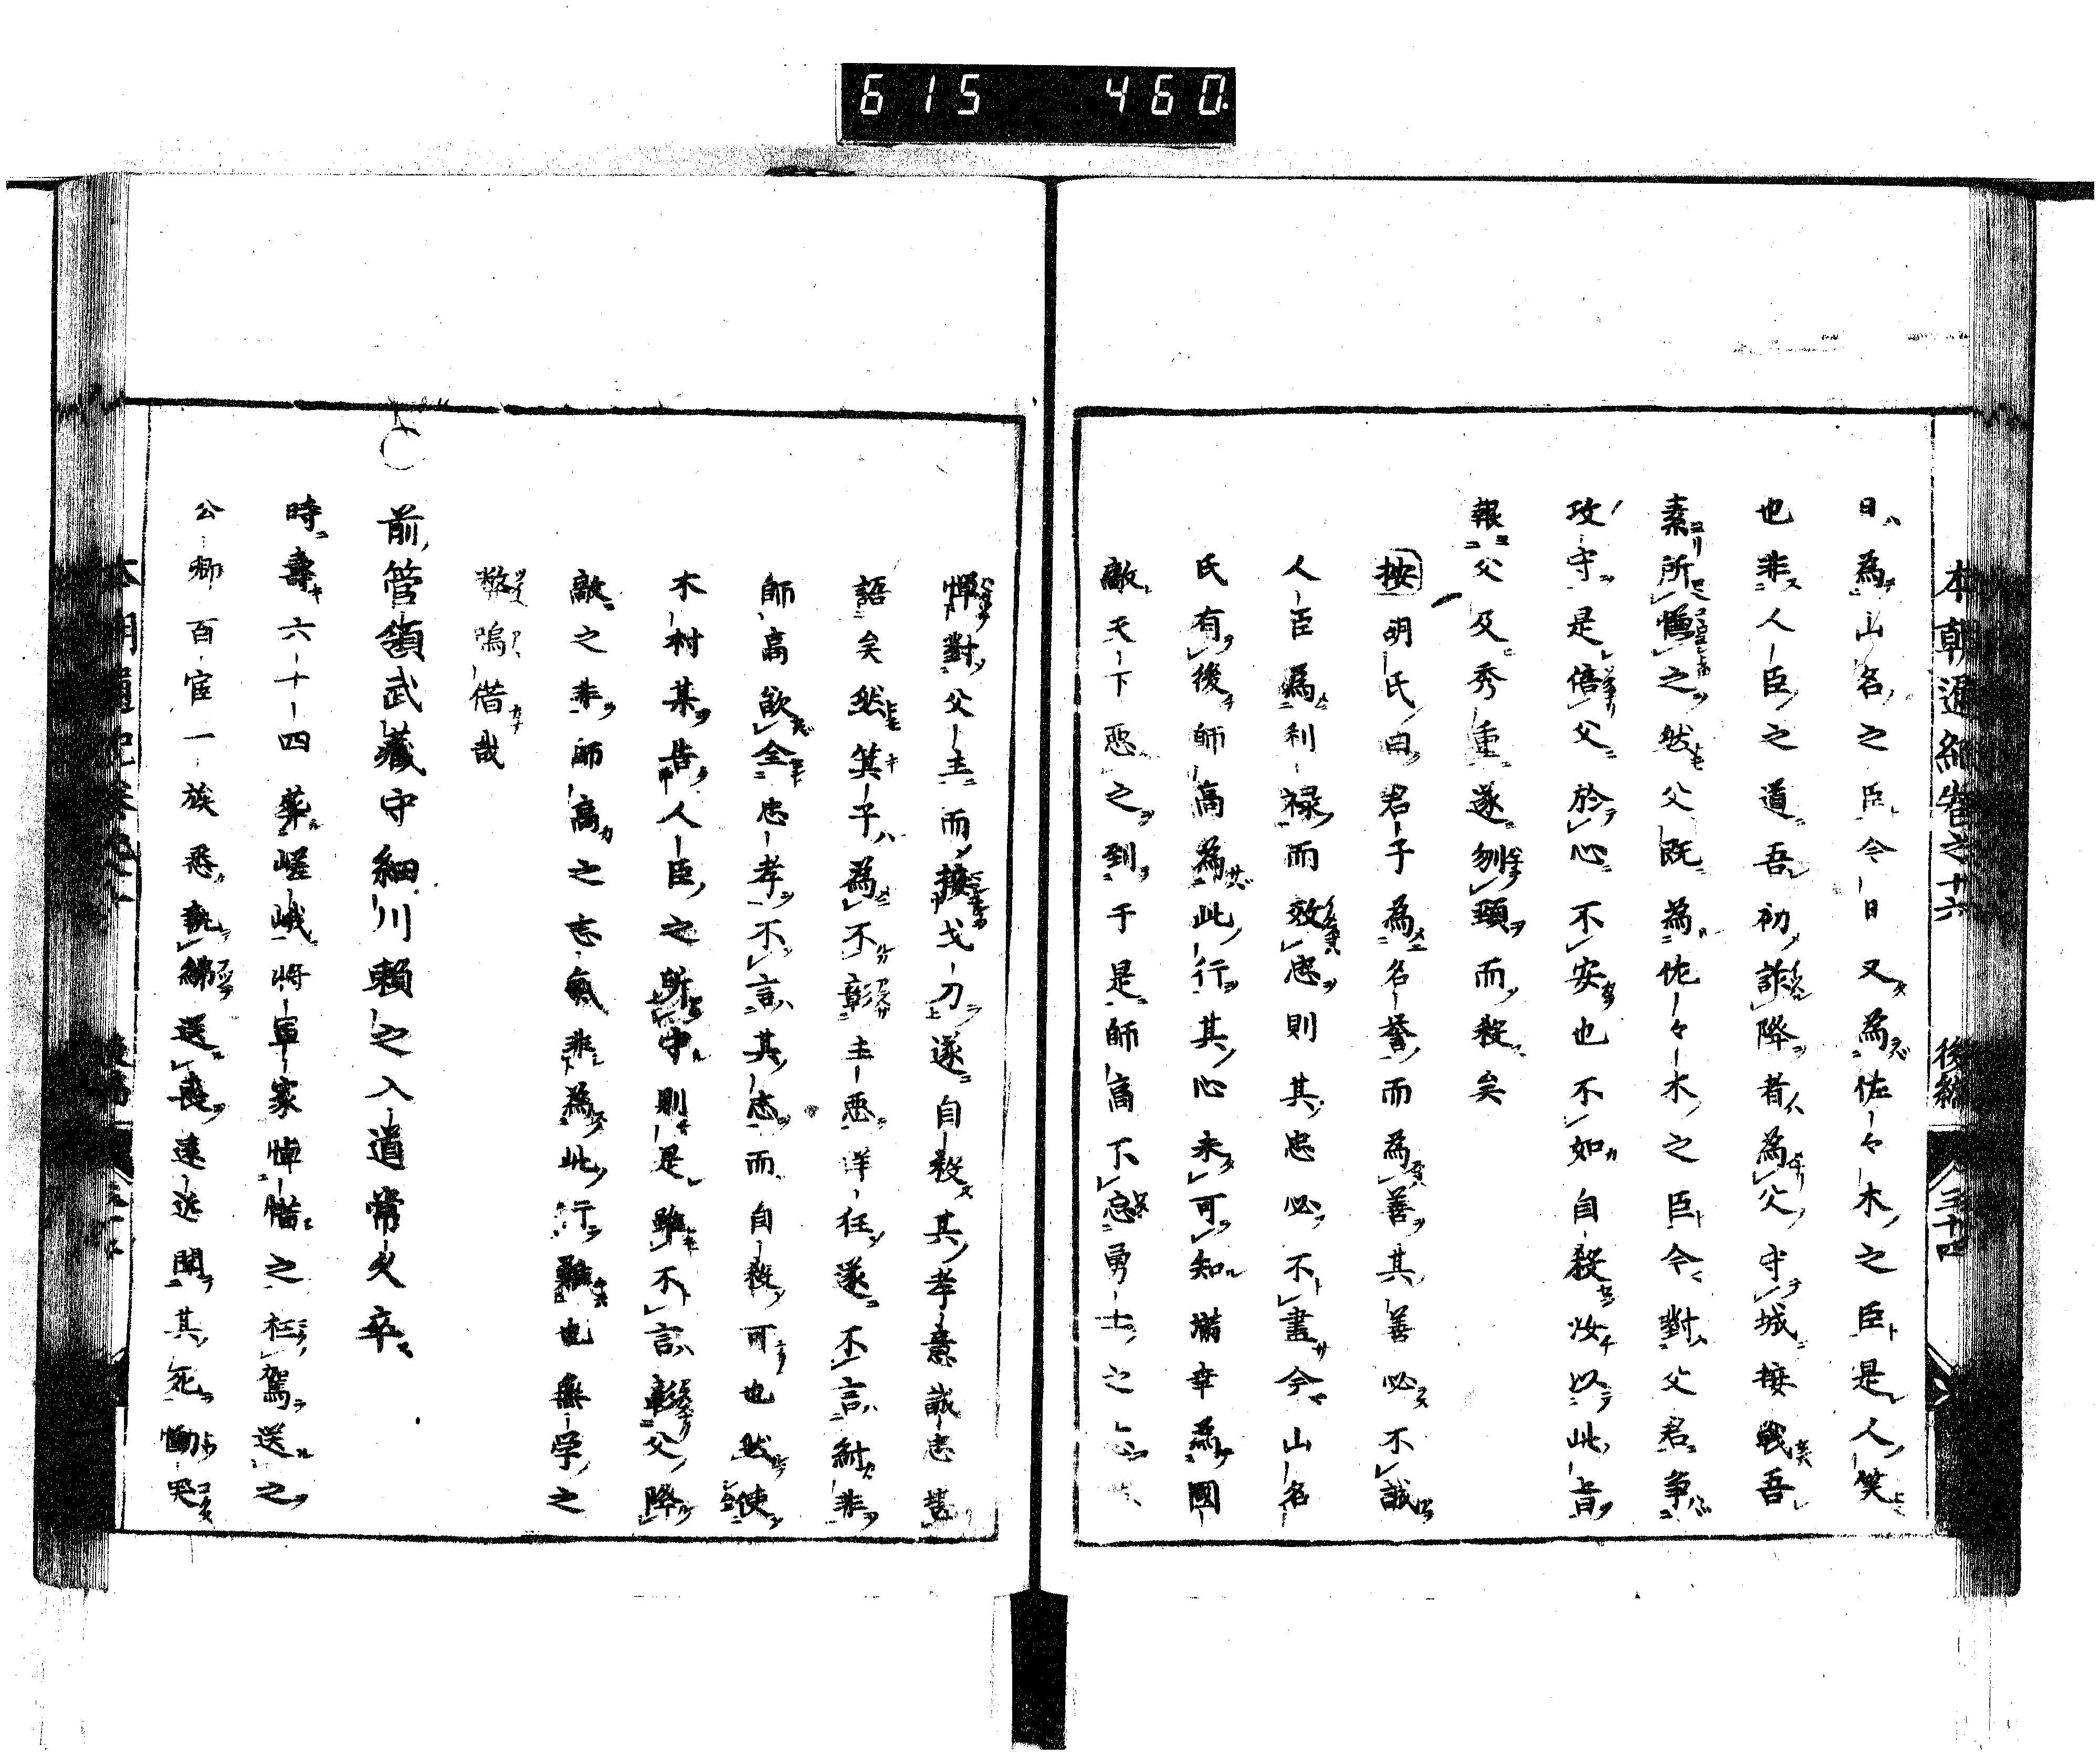 615 460
本朝通紀卷之十六 後編 三十四
日為山名之臣今日又為佐々木之臣是人笑
也非人臣之道吾初詐降者為父守城接戰吾
素所憤之然父既為佐々木之臣今對父君爭
攻守是倍父於心不安也不如自殺汝以此旨
報父及秀重遂刎頸而殺矣
按明氏曰君子為名譽而為善其善必不誠
人臣為利祿而效忠則其忠必不盡今山名
氏有後師高為此行其心未可知滿幸為國
敵天下惡之到于是師高不忍勇士之
憚對父主而接戈刀遂自殺其孝意誠忠
語矣然箕子為不彰主惡詳狂遂不言紂非
師高欲全忠孝不言其志而自殺可也然使
木村某告人臣之所中則是雖不言彰父降
敵之非師高之志氣非為此行難也無学之
弊嗚借哉
前管領武藏守細川賴之入道常久卒
時壽六十四葬嵯峨將軍家悼惜之枉駕送之
公卿百官一族悉執紼送喪遠近聞其死慟哭